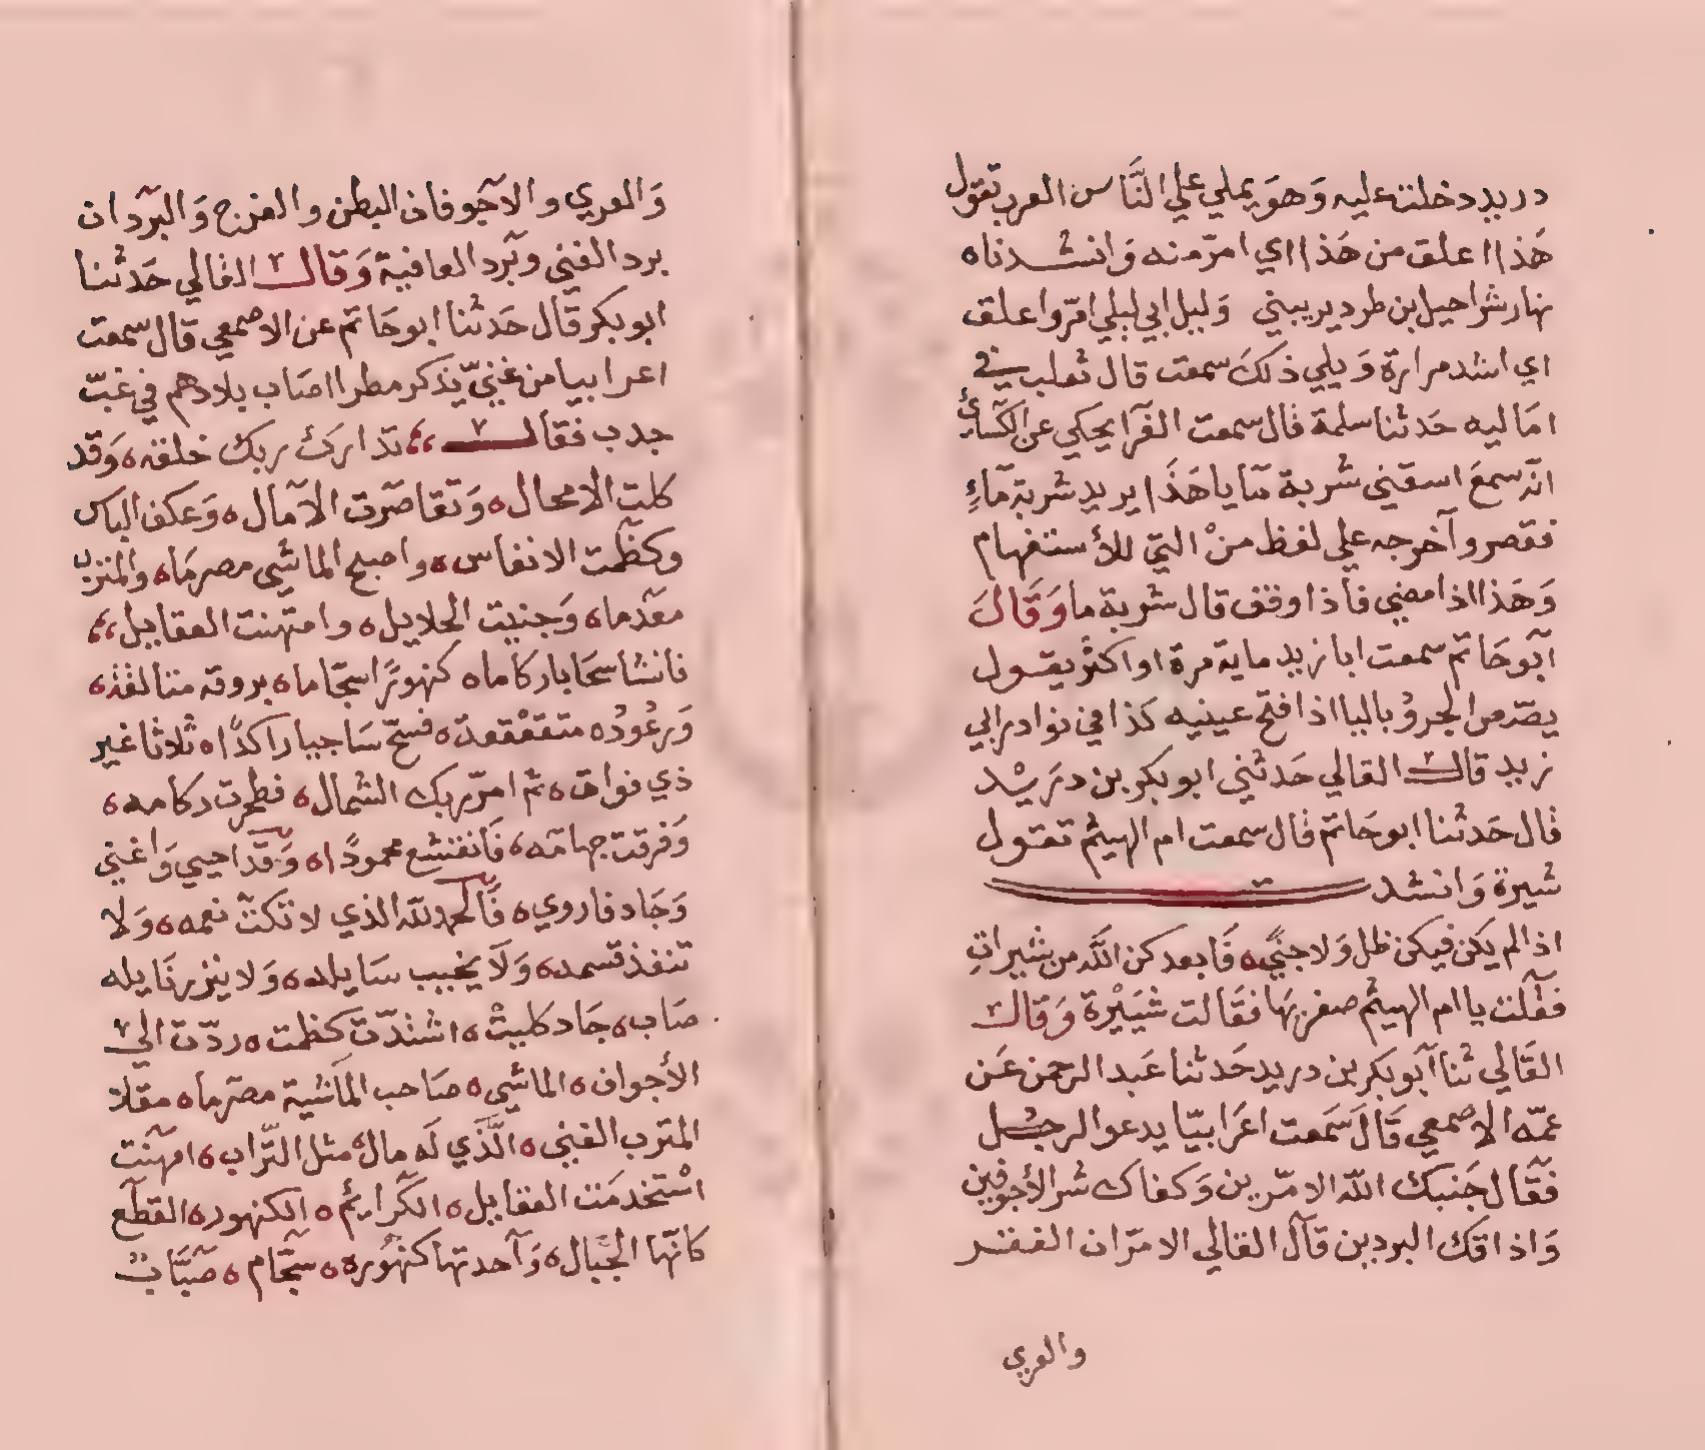 دريد دخلت عليه وَهوَ يملي علي النَّاس العرب تقول
هَذا اعلق من هَذا اي امرّ منه وَانشدناه
نهار شراحيل بن طرد يريبني وَليل ابي ليلي امرّ واعلق
اي اشد مرارة وَيلي ذلكَ سمعت قال ثعلب في
امَاليه حَدثنا سلمة قال سمعت الفرّا يحكي عن الكسائي
انّه سمعَ اسقني شربة مَا يا هَذَا يريد شربة مآءٍ
فقصر وآخرجه علي لفظ منْ التي للأستفهام
وَهَذا اذا مضي فأذا وقف قال شربة ما وَقَالَ
آبَو حَاتم سمعت ابا زيد ماية مرة او اكثر يقول
يصّرمن الجروُ باليا اذا فتح عينيه كذا في نوادر ابي
زيد قال القالي حَدثني ابو بكر بن دريْد
قال حَدثنا ابو حَاتم قال سمعت ام الهيثم تقول
شيرة وَانشد
اذا لم يكن فيكن ظل وَلا جنًي فَابعدكن اللَّه من شيراتِ
فقلت يا ام الهيثم صغريهَا فقَالت شيَيْرة وَقال
القَالي ثنا آبَو بكر بن دريد حَدثنا عَبد الرحمن عَن
عمّه الاصمعي قَالَ سَمَعت اعَرَابيّا يدعوا لرجل
فقَال جَنبك اللّه الامرّين وَكفاك شر الأجوفين
وَاذاقك البردين قآل القالي الامرّان الفقر
والعري
وَالعري والآجَوفان البطن والفرج وَالبرَدان
برد الغني وبَرد العافية وَقال القالي حَدثنا
ابو بكر قال حَدثنا ابو حَاتم عن الاصمعي قال سمعت
اعرابيا من غنيّ يذكر مطرا اصَاب بلادهم في غبّ
جدب فقال تدارك ربك خلقه وَقد
كلبت الامحال وَتقاصَرت الآمال وَعكف الياس
وكظمت الانفاس واصبح الماشي مصرمَا والمترب
معَدما وَجنيت الحلايل وامتهنت العقايل
فانشا سَحَابا ركاما كنهورًا سجّاما بروقه متالقة
وَرعُودُه متقعْقعة فسَحّ سَاجيا راكدًا ثلاثا غير
ذي فواق ثم امرّ ربك الشمال فطحرت ركامه
وَفرقت جهامَه فَانقشع محمودًا وَقد احيي وَاغني
وَجَاد فاروي فَالحمد للّه الذي لا تكتّ نعمه وَلا
تنفذ قسمه وَلَا يخيب سَايله وَلا ينزر نَايله
صَاب جَاد كلبتْ اشتدّت كظمت ردّت الي
الأجواف الماشي صَاحب المَاشية مصّرما مقلا
المترب الغني الَّذَي لَه مالٌ مثل التّراب امتهَنت
اسْتخدمَت العقايل الكَرايم الكنهور القطَع
كانّها الجبَال وَآحدتها كنهُورة سجّام صَبَّابٌ